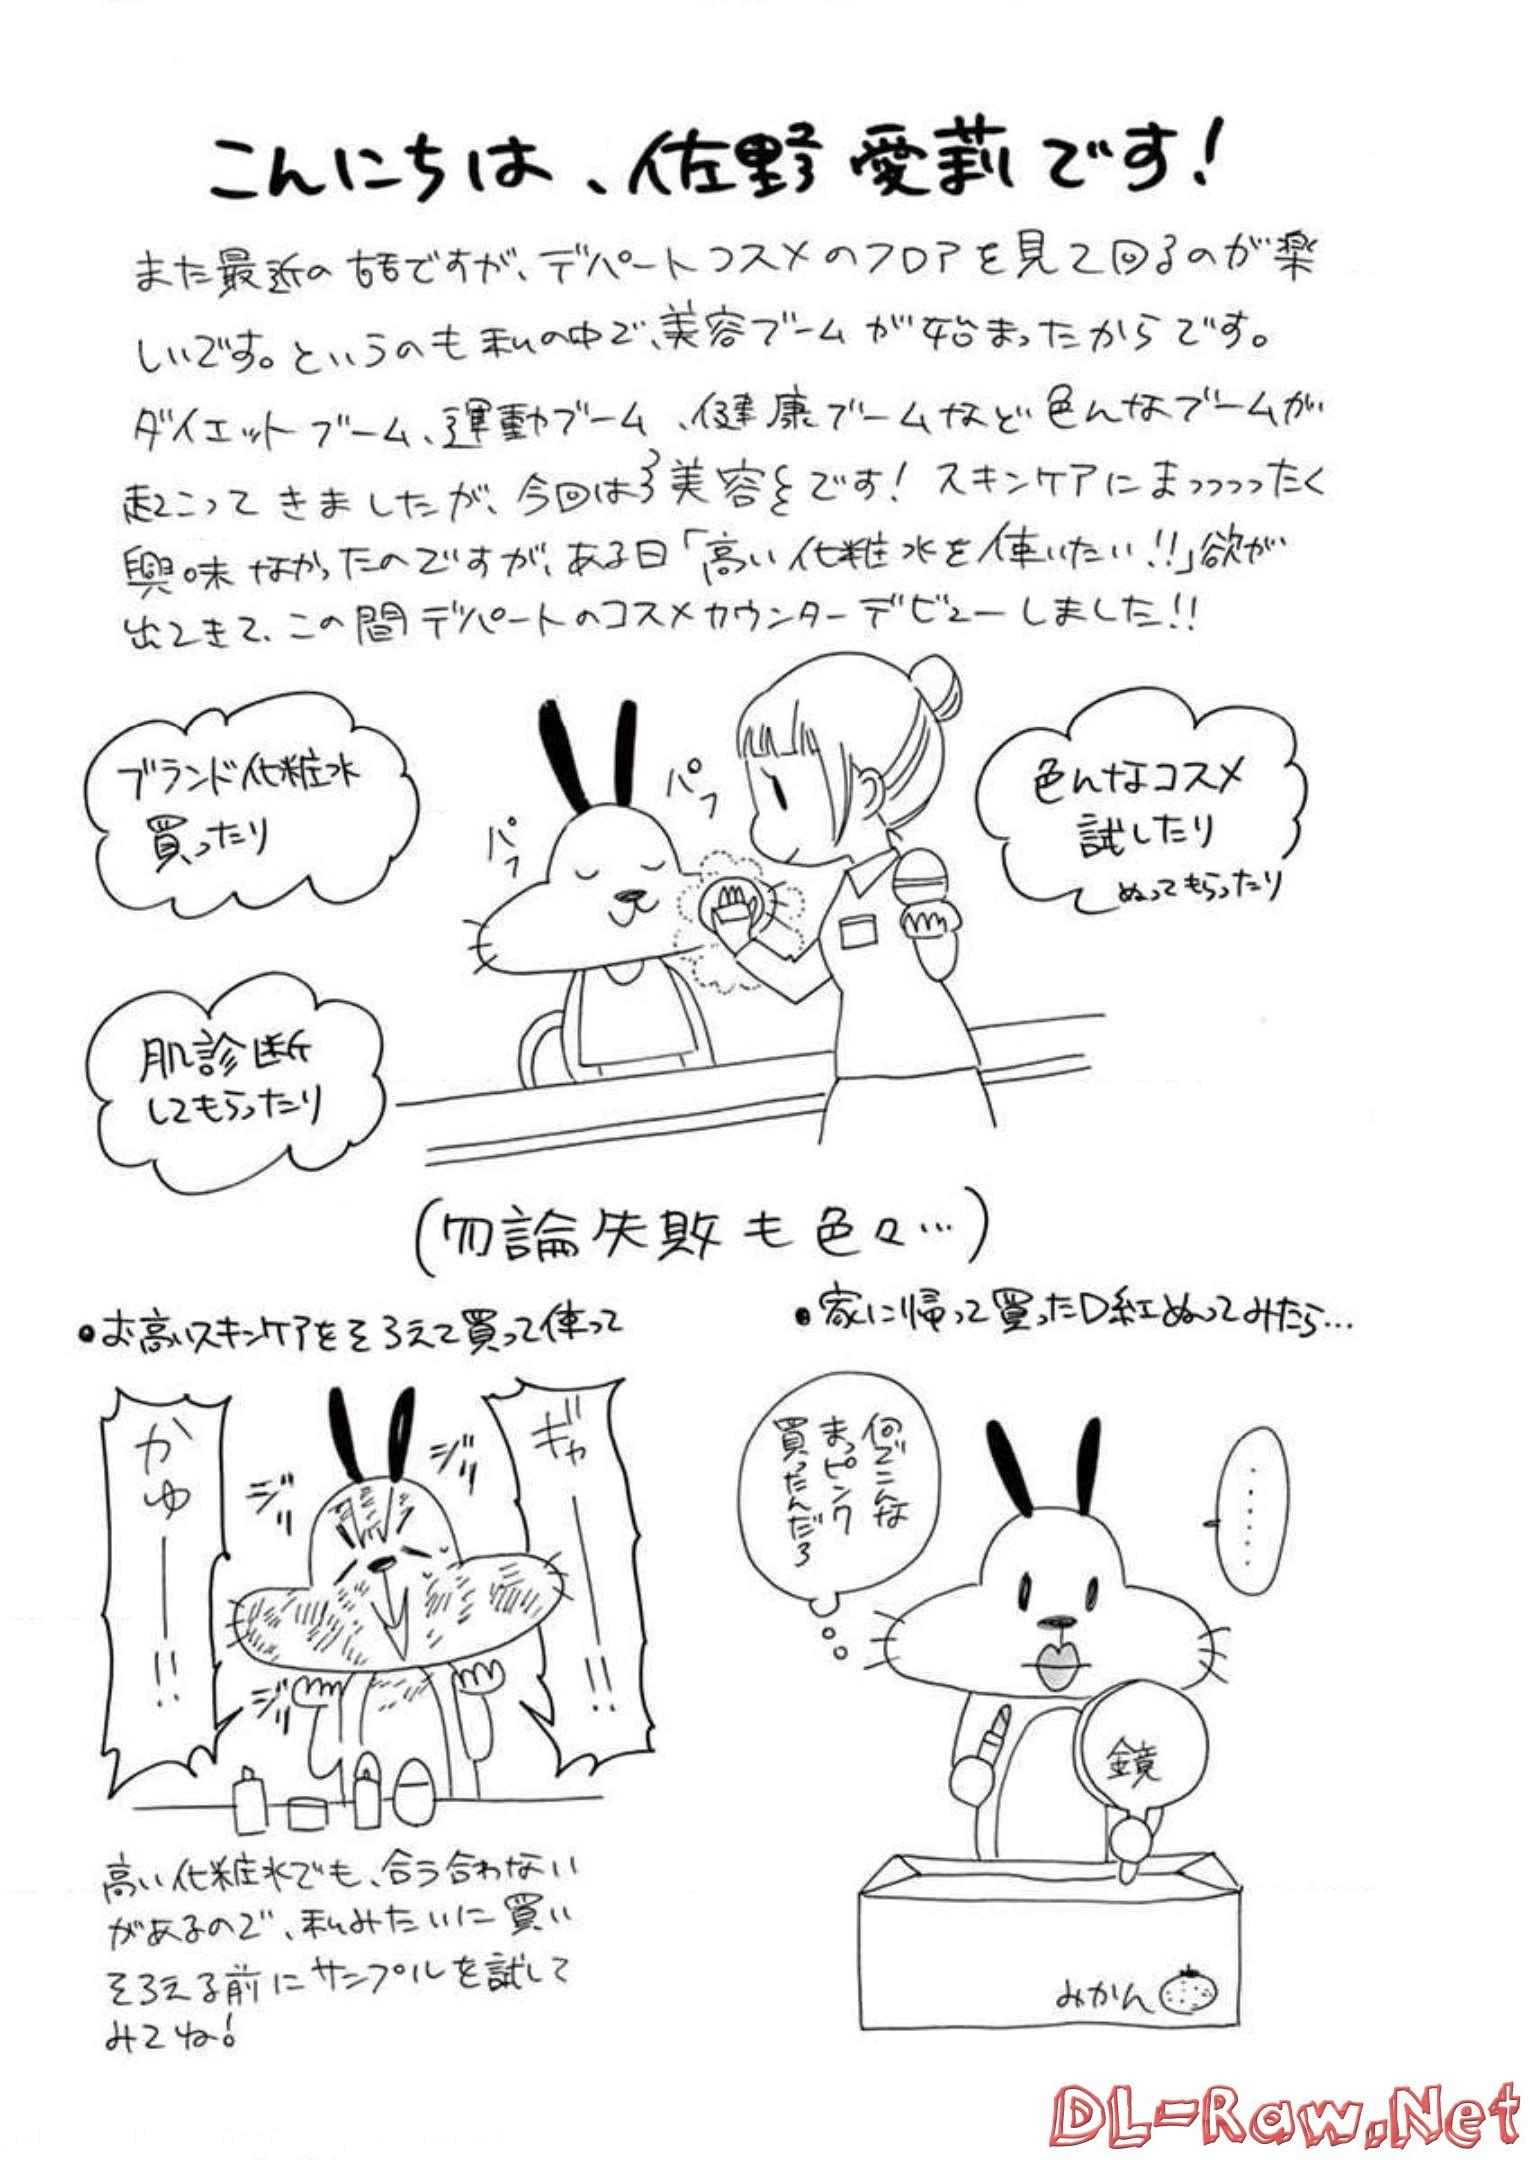 こんにちは、佐野愛莉です!
また最近の話ですが、デパートコスメのフロアを見て回るのが楽
しいです。というのも私の中で、美容ブームが始まったからです。
ダイエットブーム、運動ブーム、健康ブームなど色んなブームが
起こってきましたが、今回は美容です!スキンケアにまっつつったく
興味なかったのですが、ある日「高い化粧水を使いたい!!」欲が
出てきて、この間デパートのコスメカウンターデビューしました!!
ブランド化粧水
買ったり
パフ
パフ
色んなコスメ
試したり
ぬってもらったり
肌診断
してもらったり
(勿論失敗も色々…)
•お高いスキンケアをそろえて買って使って
かゆ――!!
ジリ
ジリ
ジリ
ギャ――!!
高い化粧水でも、合う合わない
があるので、私みたいに買い
そろえる前にサンプルを試して
みてね!
•家に帰って買った口紅ぬってみたら…
何でこんな
まっピンク
買ったんだろ
……
鏡
みかん
DL-Raw.Net